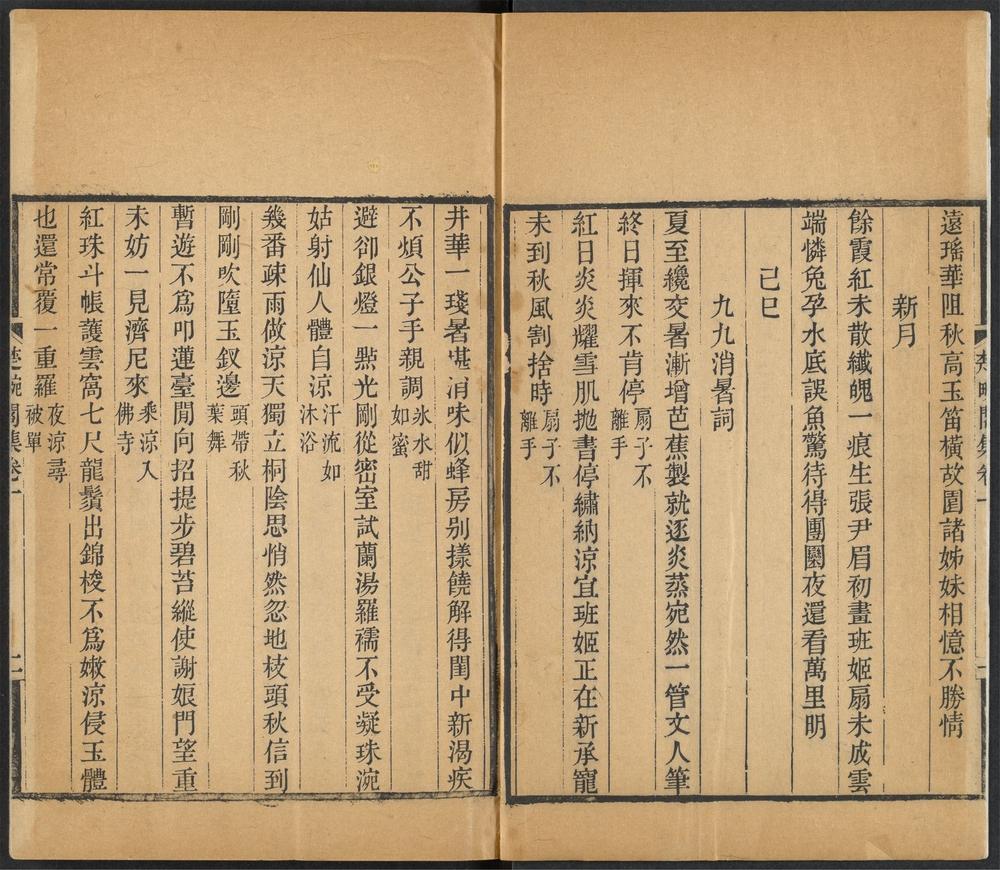 遠瑤華阻秋高玉笛橫故園諸姊妹相憶不勝情
新月
餘霞紅未散纖魄一痕生張尹眉初畫班姬扇未成雲
端憐兔孕水底誤魚驚待得團圞夜還看萬里明
己巳
九九消暑詞
夏至纔交暑漸增芭蕉製就逐炎蒸宛然一管文人筆
終日揮來不肯停扇子不離手
紅日炎炎耀雪肌拋書停繡納涼宜班姬正在新承寵
未到秋風割捨時扇子不離手
井華一琖暑堪消味似蜂房別㨾饒解得閨中新渴疾
不煩公子手親調氷水甜如蜜
避卻銀燈一㸃光剛從密室試蘭湯羅襦不受凝珠涴
姑射仙人體自涼汗流如沐浴
幾番疎雨做涼天獨立桐陰思悄然忽地枝頭秋信到
剛剛吹墮玉釵邊頭帶秋葉舞
暫遊不爲叩蓮臺閒向招提步碧苔縱使謝娘門望重
未妨一見濟尼來乘涼入佛寺
紅珠斗帳護雲窩七尺龍鬚出錦梭不爲嫩涼侵玉體
也還常覆一重羅夜涼尋被單
楚畹閣集卷一
二